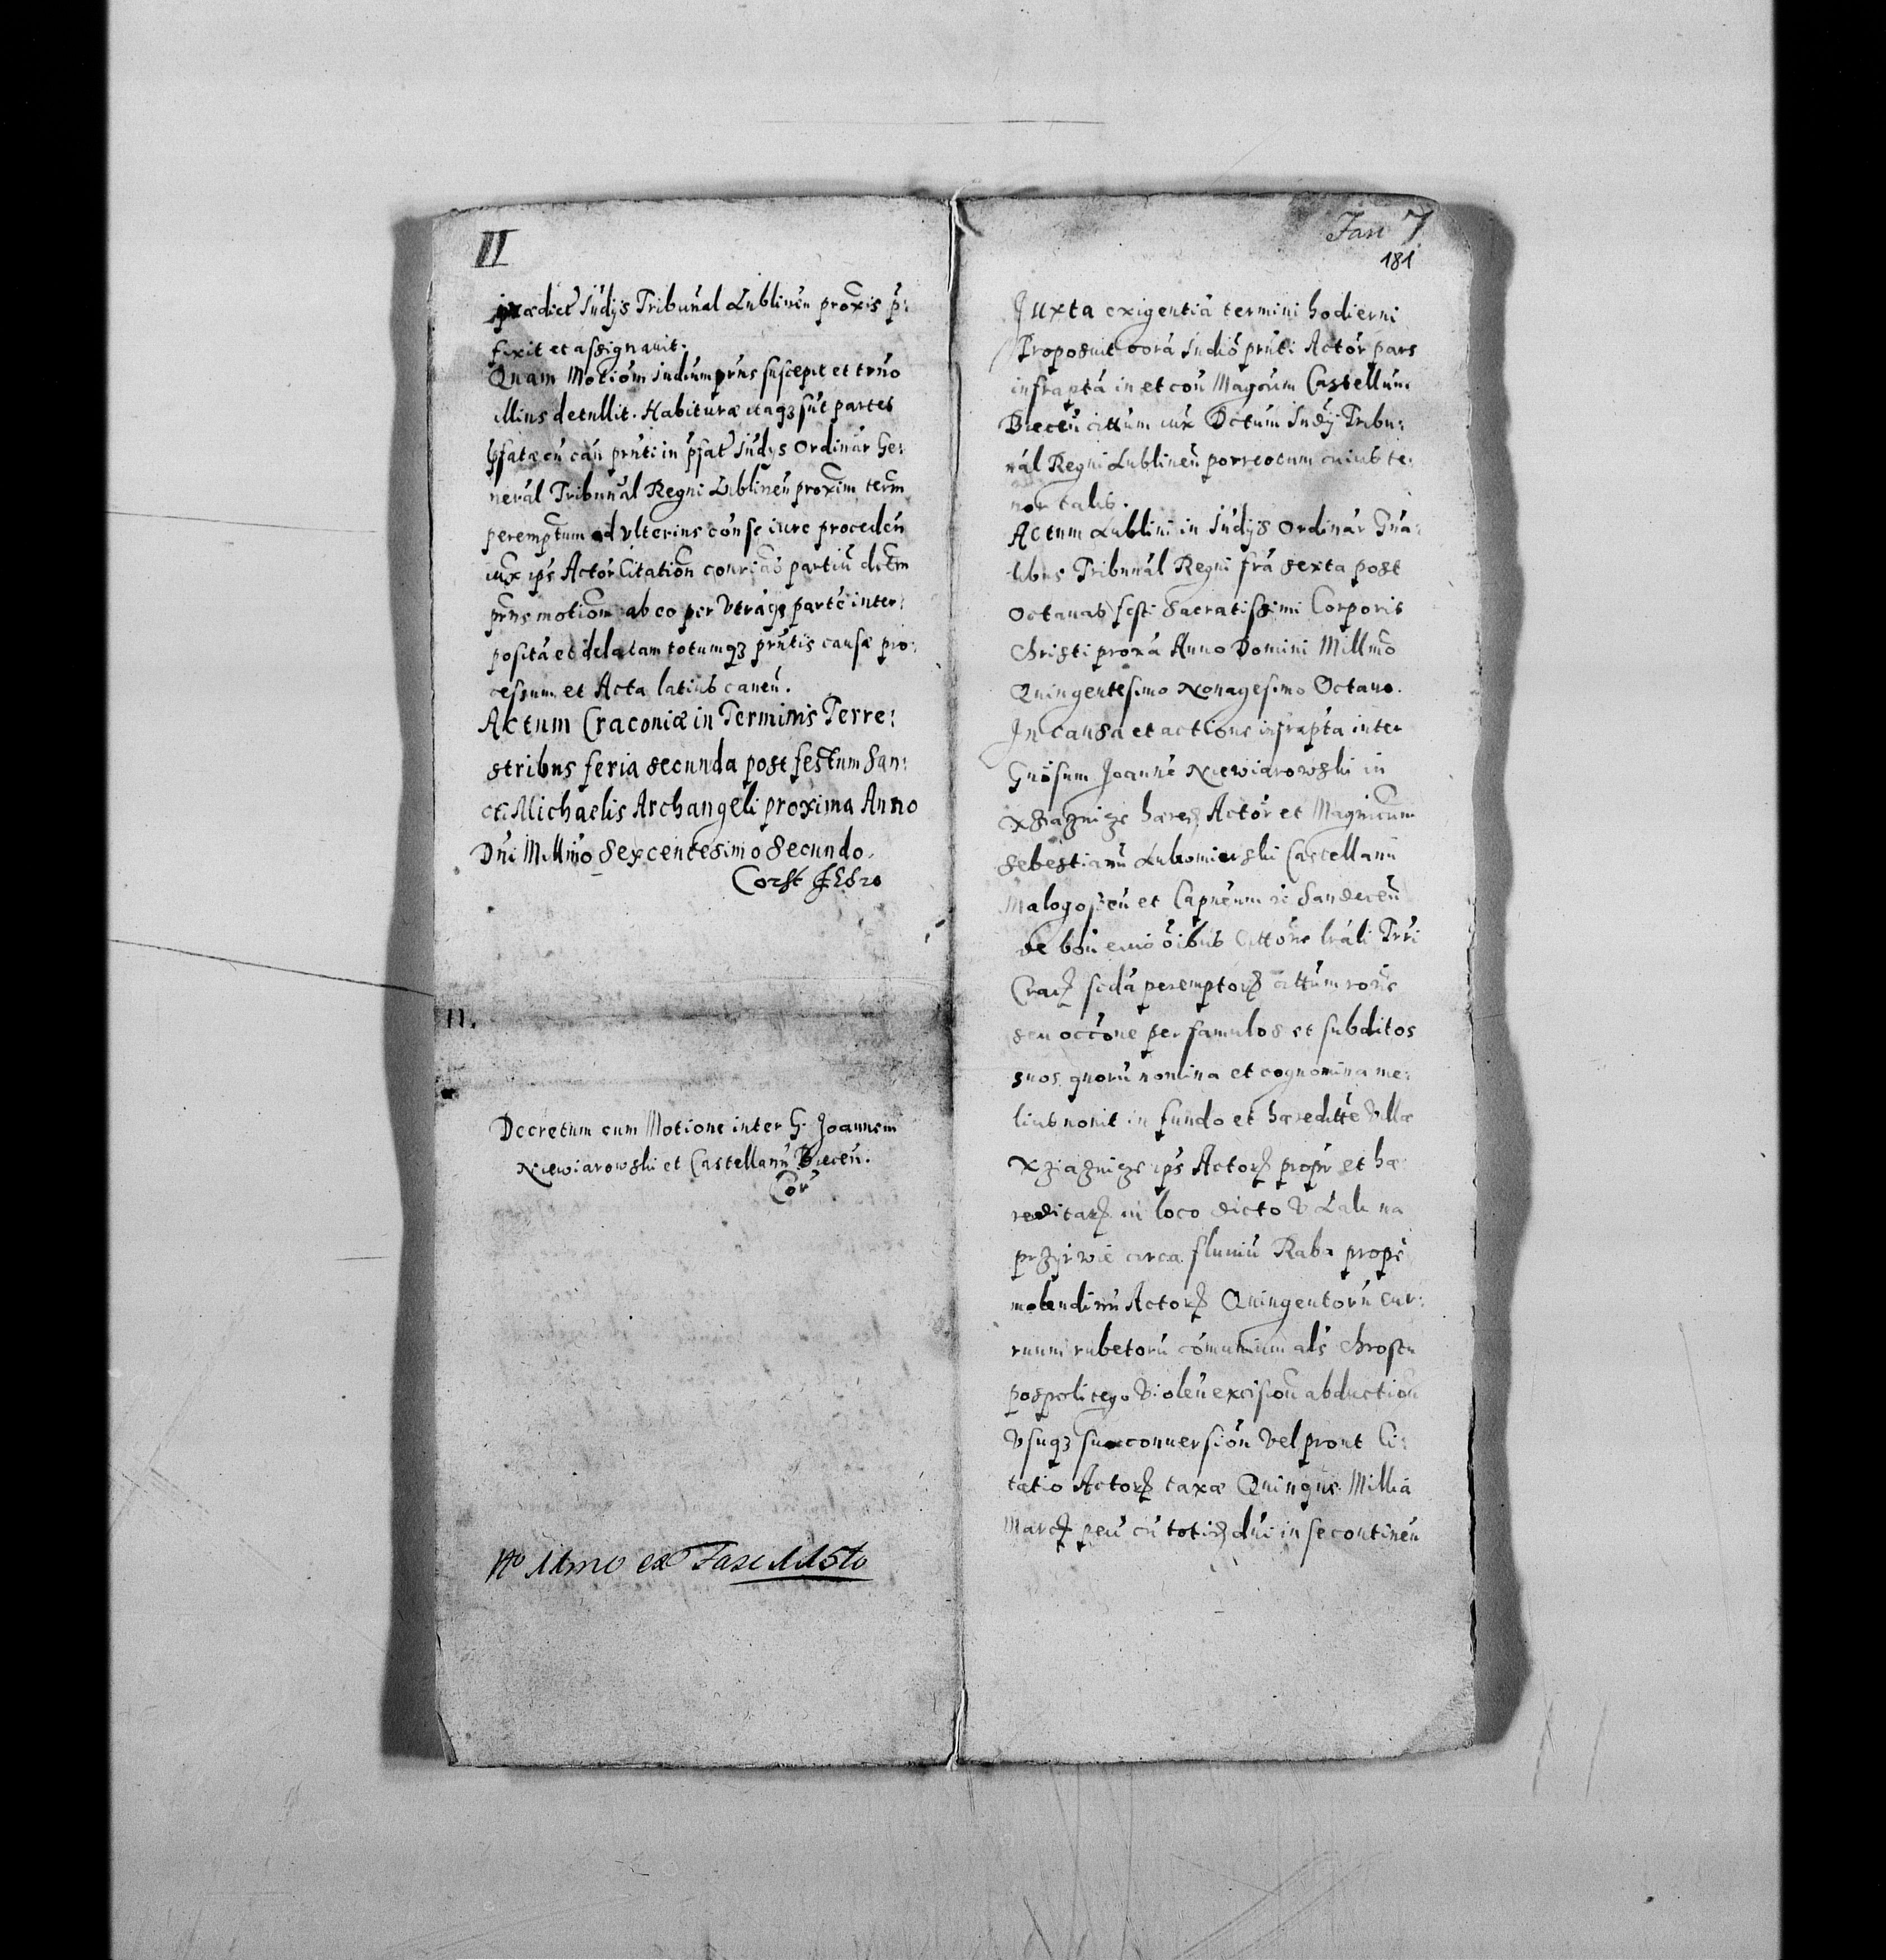 II
prædict Iudijs Tribunal Lublineń proxis p̄:
fixit et assignauit.
Quam Motiom Iudium prńs suscepit et trńo
illius detullit. Habituræ itaqȝ sūt partes
p̄fatæ cū cāu prn̄ti in p̄fat Iudijs Ordinar Ge:
neral Tribunal Regni Lublineń proxim term
peremptum ad vlterius con se iure procedeń
iux ip̄s Actor Citation contrias partiū dctm
prn̄s motiom ab eo per Vtraqȝ partē inter:
positā et delatam totumqȝ prn̄tis causæ pro:
cessum et Acta latius caneń.
Actum Cracouiæ in Terminis Terre:
stribus feria secunda post festum San:
cti Michaelis Archangeli proxima Anno
Dn̄i Millmo Sexcentesimo Secundo.
11.
Decretum cum Motione inter G. Joannem
Niewiarowski et Castellanū Biecen̄.
Cor
No 11mo ex Fasc 115to
Fasc 7
181
Juxta exigentiā termini hodierni
Proposuit corā Iudio prn̄ti Actor pars
infraptā in et con̄ Magcum Castellum
Biecen̄ cittum iux Dctum Iudij Tribu:
nál Regni Lublinen̄ porrectum cuius te:
nor talis.
Actum Lublini in Iudijs Ordinar Gn̄a:
libus Tribunál Regni fr̄a sexta post
Octauas festi Sacratissimi Corporis
Christi proxā Anno Domini Millmo
Quingentesimo Nonagesimo Octauo.
In causa et actione infrapta inter
Gn̄osum Joannē Niewiarowski in
Xziaznicze hæres Actor et Magnicum
Sebestianū Lubomierski Castellanū
Malogoscen̄ et Capn̄eum Sandecen̄
de bon̄ eius oībus Cittōne lrāli Trri
Crac sedā peremptor cittum
seu occōne per famulos et subditos
suos quorū nomina et cognomina me:
lius nouit in fundo et hæreditte Villæ
Xziaznicze ip̄s Actor propr et hæ:
reditar in loco dicto V Lak na
przyrwie circa fluuiū Raba propė
molendinū Actor Quingentorū cur:
ruum rubetorū cōmunium als chrostu
pospolitego Violen̄ excision̄ abduction̄
Vsuqȝ su conuersion̄ Vel prout Ci:
tatio Actor taxæ Quinque Millia
Marc pecū totid dn̄i in se continen̄